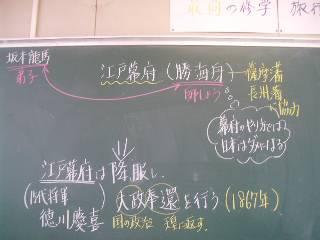 最高の修学旅行
坂本龍馬
弟子
江戸幕府（勝海舟）
師しょう
薩摩藩
長州藩
協力
幕府のやり方では
日本はダメになる！
江戸幕府は降服し、
（15代将軍） 大政奉還を行う（1867年）
徳川慶喜 国の政治 環に返す。